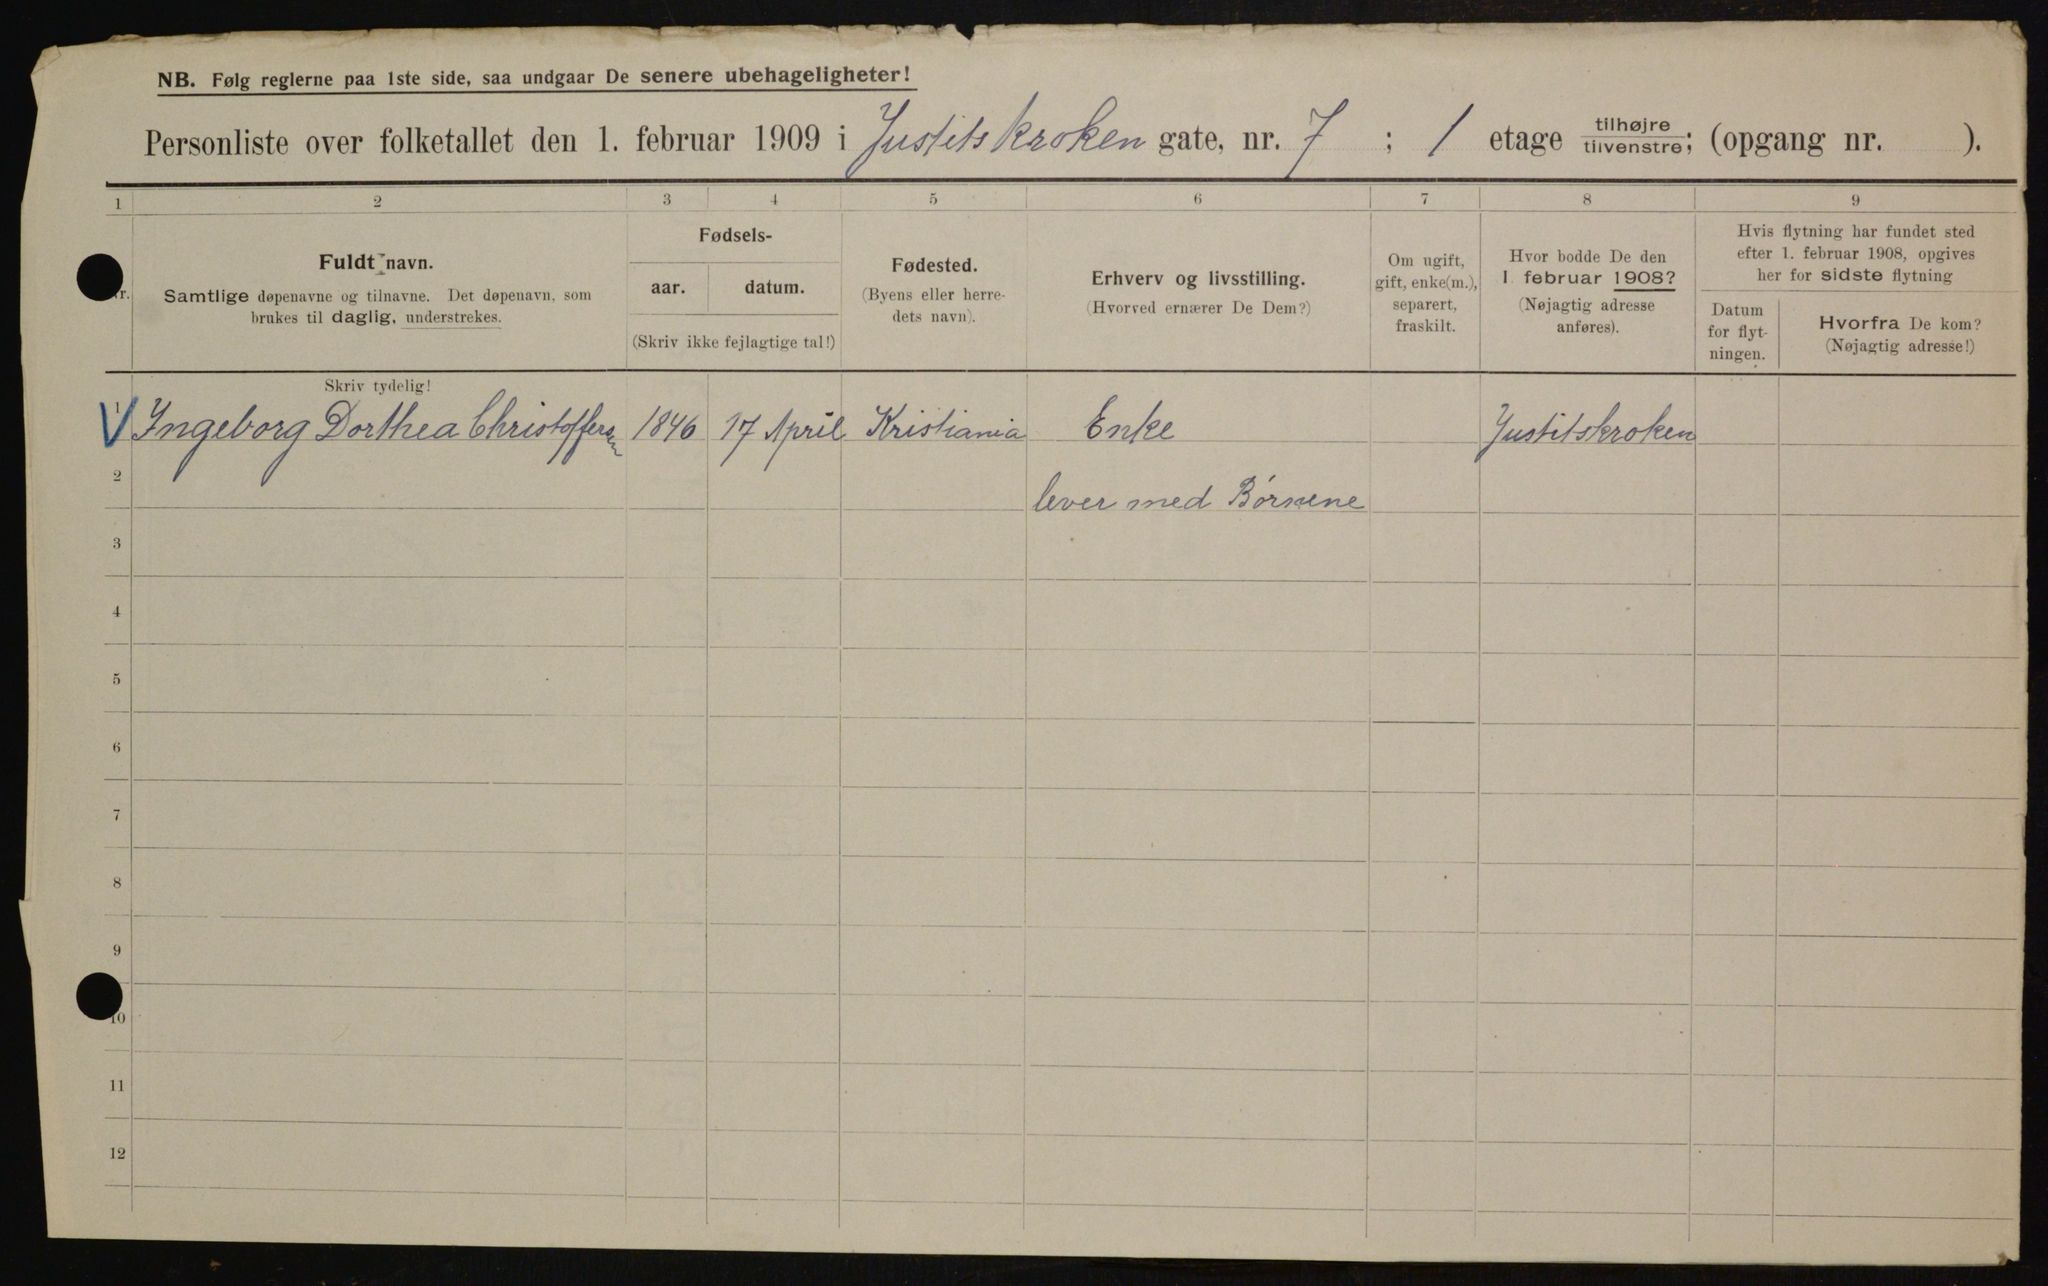 NB. Følg reglerne paa 1ste side, saa undgaar De senere ubehageligheter!
Personliste over folketallet den 1. februar 1909 i Justitskroken gate, nr. 7 ; 1 etage tilhøjre tilvenstre; (opgang nr. ).
1 2 3 4 5 6 7 8 9
Nr.
Fuldt navn.
Samtlige døpenavne og tilnavne. Det døpenavn, som
brukes til daglig, understrekes.
Skriv tydelig!
Fødsels-
aar. datum.
(Skriv ikke fejlagtige tal!)
Fødested.
(Byens eller herre-
dets navn).
Erhverv og livsstilling.
(Hvorved ernærer De Dem?)
Om ugift,
gift, enke(m.),
separert,
fraskilt.
Hvor bodde De den
1. februar 1908?
(Nøjagtig adresse
anføres).
Hvis flytning har fundet sted
efter 1. februar 1908, opgives
her for sidste flytning
Datum
for flyt-
ningen.
Hvorfra De kom?
(Nøjagtig adresse!)
1 Ingeborg Dorthea Christoffersen 1846 17 April Kristiania Enke Justitskroken
2 lever med Børnene
3
4
5
6
7
8
9
10
11
12